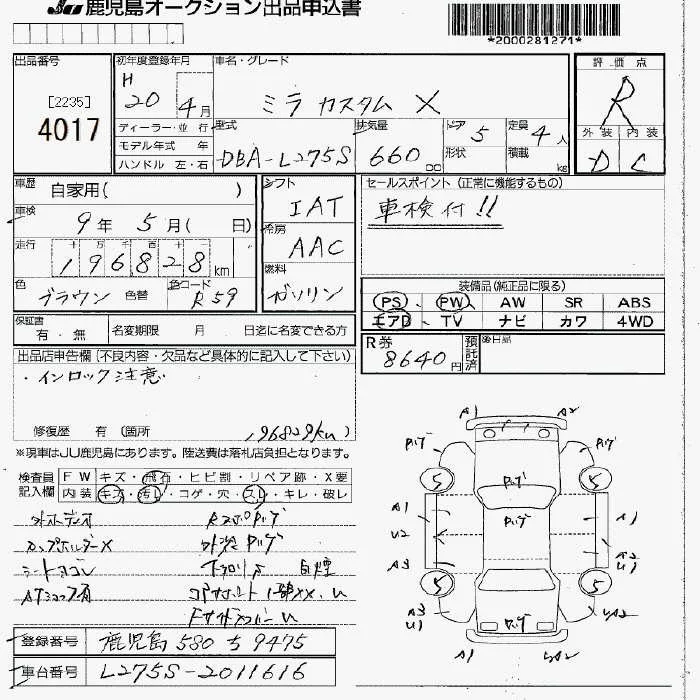 鹿児島オークション出品申込書
*2000281271*
出品番号
[2235]
4017
初年度登録年月
H
20 4月
ディーラー・並 行
モデル年式 年
ハンドル 左・右
車名・グレード
ミラ カスタム X
型式
DBA-L275S
排気量
660 cc
ドア 5
形状
定員 4人
積載 kg
評 価 点
R
外 装 内 装
D C
車歴 自家用( )
車検 9年 5月( 日)
走行 十 万 千 百 十 一
196828 km
色 ブラウン 色替
色コード R59
シフト
IAT
冷房
AAC
燃料
ガソリン
セールスポイント (正常に機能するもの)
車検付!!
装備品(純正品に限る)
PS PW AW SR ABS
エアB TV ナビ カワ 4WD
保証書
有・無
名変期限 月 日迄に名変できる方
R券
8640円
預託済
後日品
出品店申告欄(不良内容・欠品など具体的に記入して下さい)
・インロック注意
修復歴 有 (箇所
196829km)
※現車はJU鹿児島にあります。陸送費は落札店負担となります。
検査員記入欄
FW キズ・飛石・ヒビ割・リペア跡・X要
内装 キズ・汚レ・コゲ・穴・スレ・キレ・破レ
カップホルダーX
シートヨゴレ
A1 A2
A1
U2
A3
A1
A2
U1
A3
U1
A1
5 5
5 5
登録番号 鹿児島 580 ち 9475
車台番号 L275S-2011616